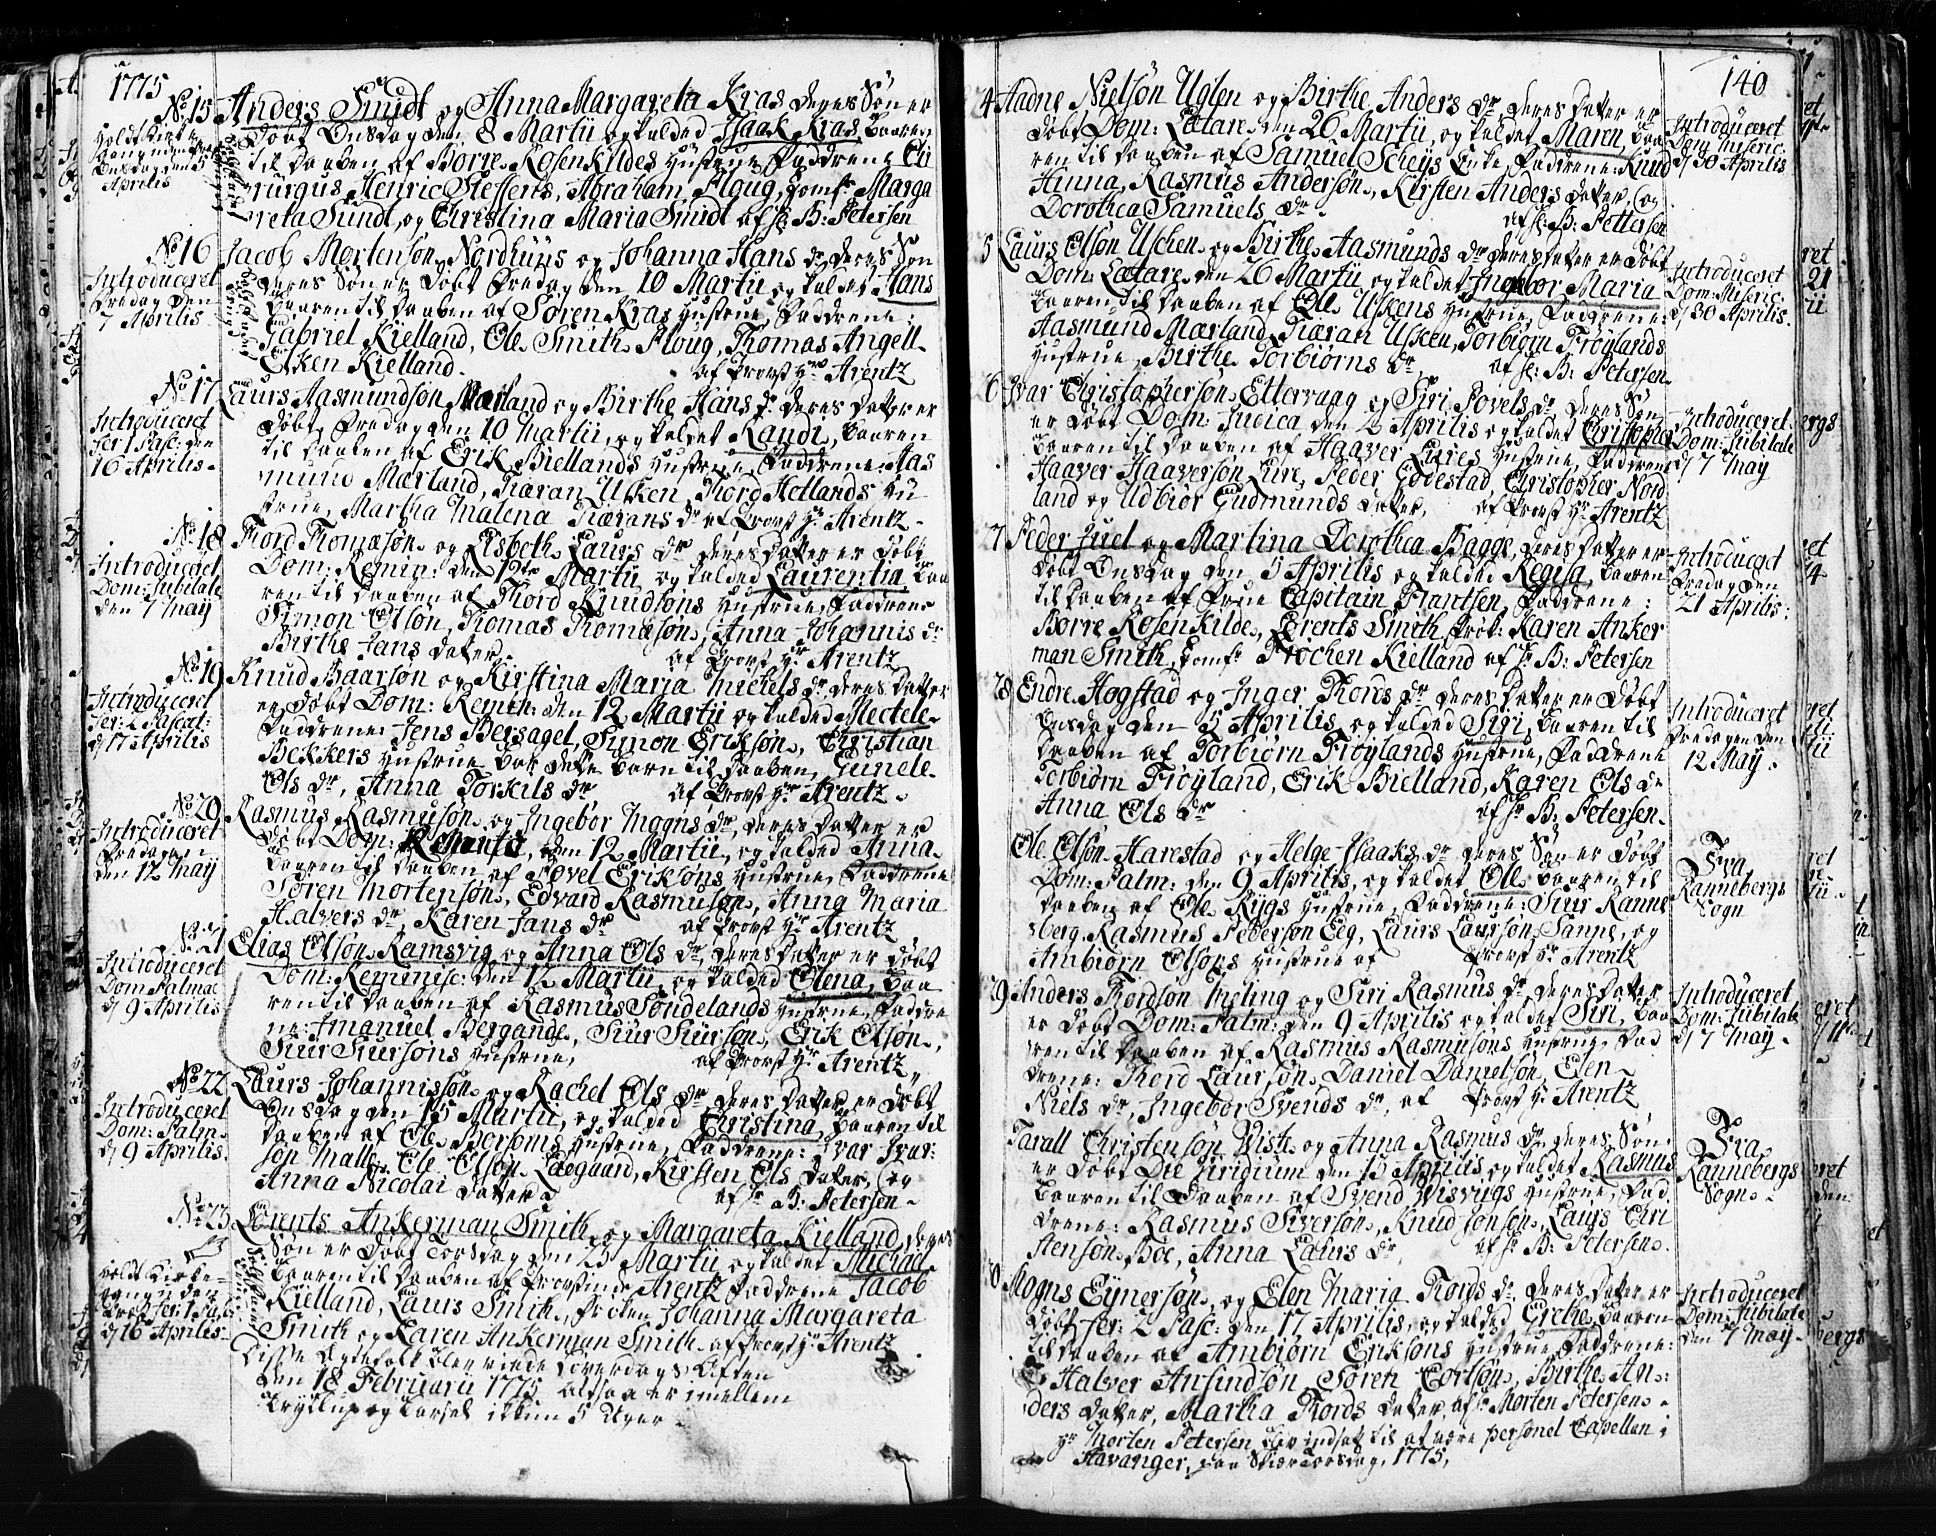 1775
No 15 Anders Smidt og Anna Margareta Kras deres Søn er
døbt Onsdag den 8 Martii og kalded Isaak Kras baaren
til daaben af Børre Rosenkildes Hustrue, Faddrene Chi
rurgus Henric Steffens, Abraham Ploug, Jomfr Marga
reta Sundt, og Christina Maria Smidt af Hr B: Petersen
Onsdag den 5
Aprilis
No 16 Jacob Mortensøn Nordhuus og Johanna Hans dr deres Søn
deres Søn er døbt Fredag den 10 Martii og kaldet Hans
baaren til daaben af Søren Kras Hustrue, Faddrene:
Gabriel Kielland, Ole Smith Ploug, Thomas Angell
Elken Kielland. af Provst Hr Arentz
Introduceret
Fredag den
7 Aprilis
No 17 Laurs Aasmundsøn Marland og Birthe Hans dr deres Datter er
døbt Fredag den 10 Martii, og kaldet Randi, baaren
til daaben af Erik Biellands Hustrue, Faddrene: Aas
mund Marland, Tiæran Usken, Thord Hetlands Hu
strue, Martha Malena Tiærans dr af Provst Hr Arentz
Introduceret
Fer: 1 Pasc: den
16 Aprilis
No 18 Thord Thomæsøn og Elsbeth Laurs dr deres Datter er døbt
Dom: Remin: den 12te Martii og kaldet Laurentia baa
ren til daaben af Thord Knudsøns Hustrue, Faddrene
Simon Olsøn, Thomas Thomæsøn, Anna Johannis dr
Birthe Jans datter af Provst Hr Arentz
Introduceret
Dom: Jubilate
den 7 May
No 19 Knud Baarsøn og Kirstina Maria Michels dr deres Datter
er døbt Dom: Remin: den 12 Martii og kalded Mectele
Faddrene: Jens Bersagel, Simon Eriksøn, Christian
Bekkers Hustrue bar dette barn til daaben, Gunele
Ols dr, Anna Torkils dr af Provst Hr Arentz
Introduceret
Fer: 2 Pascat:
d 17 Aprilis
No 20 Rasmus Rasmusøn og Ingebor Mogns dr, deres datter er
døbt Dom: den 12 Martii, og kalded Anna
baaren til daaben af Povel Eriksøns Hustrue, Faddrene
Søren Mortensøn, Edvard Rasmusøn, Anna Maria
Halvers dr, Karen Jans dr af Provst Hr Arentz
Introduceret
Fredagen
den 12 May
No 21 Elias Olsøn Ramsvig og Anna Ols dr, deres datter er døbt
Dom: Reminisc: den 12 Martii, og kaldet Olena, baa
ren til daaben af Rasmus Søndelands Hustrue, Faddre
ne: Imanuel Bergande, Siur Siursøn, Erik Olsøn,
Siur Siursøns Hustrue, af Provst Hr Arentz
Introduceret
Dom Palmar
d 9 Aprilis
No 22 Laurs Johannissøn og Rachel Ols dr deres datter er døbt
Onsdag den 15 Martii, og kaldet Christina, baaren til
daaben af Ole Borsøms Hustrue, Faddrene: Ivar Ivar:
søn Malle, Ole Olsøn Laegaard, Kirsten Ols datter, og
Anna Nicolai datter af Hr B: Petersen
Introduceret
Dom: Palm:
d 9 Aprilis
No 23 Lrents Ankerman Smith og Margareta Kielland, deres
Søn er døbt Torsdag den 23 Martii og kaldet Michael
baaren til daaben af Provstinde Arentz Faddrene Jacob
Kielland, Laurs Smith, Frøken Johanna Margareta
Smith og Karen Ankerman Smith af Provst Hr Arentz
Disse Ægtefolk blev viede Løverdags Aften
den 18 Februarii 1775 altsaa er imellem
Bryllup og Barsel ikkun 5 Uger
Holdt Kirke-
gang den
Fer: 1 Pasc
d 16 Aprilis
140
4 Aadne Nielsøn Uglen og Birthe Anders dr deres datter er
døbt Dom: Lætare den 26 Martii og kaldet Maren, baa
ren til daaben af Samuel Scheys Enke, Faddrene: Knud
Hinna, Rasmus Andersøn, Kirsten Anders datter, og
Dorothea Samuels dr af Hr B: Pettersen
Introduceret
Dom Miseric:
d 30 Aprilis
5 Laurs Olsøn Uschen og Birthe Aasmunds dr deres datter er døbt
Dom: Lætare den 26 Martii og kaldet Ingebor Maria
baaren til daaben af Ole Uskens Hustrue, Faddrene:
Aasmund Marland, Tiæran Uskeen, Torbiørn Frøylands
Hustrue, Birthe Torbiørns dr, af Hr B: Petersen
Introduceret
Dom: Miseric:
d 30 Aprilis
6 Ivar Christophersøn Ettervaag og Siri Povels dr deres Søn
er døbt Dom: Judica den 2 Aprilis og kaldet Christopher
baaren til daaben af Haaver Lures Hustrue, Faddrene
Haaver Haaversøn Lure, Peder Godestad, Christopher Nord
land og Udbior Gudmunds datter, af Provst Hr Arentz
Introduceret
Dom: Jubilate
d 7 May
7 Peder Juel og Martina Dorothea Bagge, deres datter er
døbt Onsdag den 5 Aprilis og kaldet Regisa, baaren
til daaben af Frue Capitain Frantsen, Faddrene:
Børre Rosenkilde, Lrents Smith, Frøk: Karen Anker
man Smith, Jomfr Trochen Kielland af Hr B: Petersen
Introduceret
Fredag den
21 Aprilis
28 Endre Hogstad og Inger Thords dr deres datter er døbt
Onsdag den 5 Aprilis og kaldet Siri, baaren til
daaben af Torbiørn Frøylands Hustrue, Faddrene
Torbiørn Frøyland, Erik Bielland, Karen Ols dr
Anna Ols dr af Hr B: Petersen
Introduceret
Fredagen den
12 May
Ole Olsøn Harestad og Helge Isaaks dr deres Søn er døbt
Dom: Palm: den 9 Aprilis, og kaldet Ole baaren til
daaben af Ole Rygs Hustrue, Faddrene: Siur Ranne
berg, Rasmus Pedersøn Eeg, Laurs Laursøn Sanne, og
Ambiørn Olsøns Hustrue af Provst Hr Arentz
Fra
Rannebergs
Sogn
29 Anders Thordsøn Meling og Siri Rasmus dr deres datter
er døbt Dom: Palm: den 9 Aprilis og kaldet Siri, baa
ren til daaben af Rasmus Rasmusøns Hustrue, Fad
drene: Thord Laursøn, Daniel Danielsøn, Elen
Niels dr, Ingebor Svends dr, af Provst Hr Arentz
Introduceret
Dom: Jubilate
d 7 May
Tarall Christensøn Viste og Anna Rasmus dr deres Søn
er døbt Die Viridium den 13 Aprilis og kaldet Rasmus
baaren til daaben af Svend Visvigs Hustrue, Fad
drene: Rasmus Siversøn, Knud Jonsøn, Laurs Chri
stensøn Bøe, Anna Laurs dr af Hr B: Petersen
Fra
Rannebergs
Sogn
0 Mogns Eynersøn og Elen Maria Thords dr, deres datter er
døbt Fer: 2 Pasc: den 17 Aprilis, og kaldet Grethe, baaren
til daaben af Ambiørn Eriksøns Hustrue, Faddrene:
Halver Ansindsøn, Søren Cortsøn, Birthe An:
ders datter, Martha Thords datter, af Hr Morten Petersen
Hr Morten Petersen blev indsat til at være personel Capellan i
Stavanger, paa Skiærtorsdag, 1775,
Introduceret
Dom: Jubilate
den 7 May